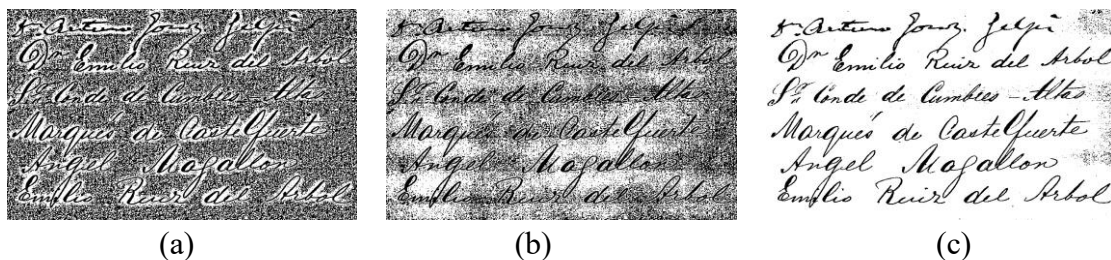 Dn. Arturo Gomiz. Gelpi
Dn Emilio Ruiz del Arbol
Sr. Conde de Cumbres-Altas
Marqués de Castelfuerte
Angel Magallon
Emilio Ruiz del Arbol
Dn. Arturo Gomiz. Gelpi
Dn Emilio Ruiz del Arbol
Sr. Conde de Cumbres-Altas
Marqués de Castelfuerte
Angel Magallon
Emilio Ruiz del Arbol
Dn. Arturo Gomiz. Gelpi
Dn Emilio Ruiz del Arbol
Sr. Conde de Cumbres-Altas
Marqués de Castelfuerte
Angel Magallon
Emilio Ruiz del Arbol
(a) (b) (c)